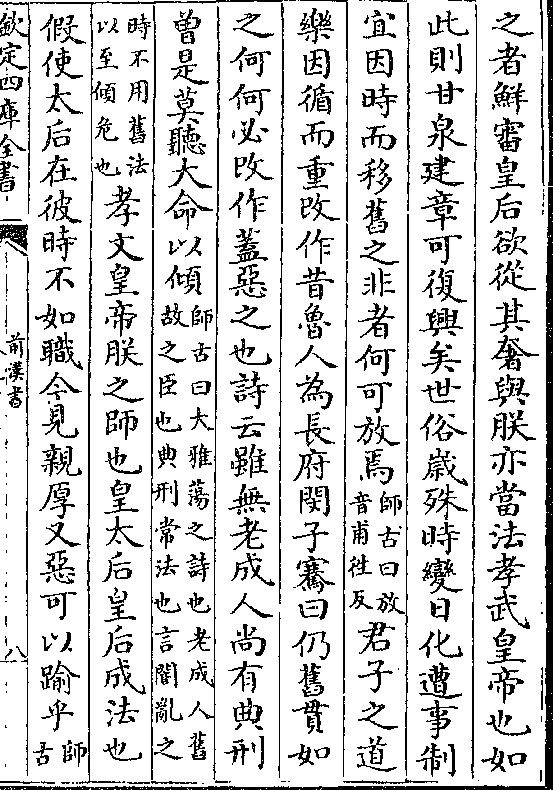 之者鮮審皇后欲從其奢與朕亦當法孝武皇帝也如
此則甘泉建章可復興矣世俗歲殊時變日化遭事制
宜因時而移舊之非者何可放焉師古曰放音甫徃反君子之道
樂因循而重改作昔魯人為長府閔子騫曰仍舊貫如
之何何必改作蓋惡之也詩云雖無老成人尚有典刑
曾是莫聽大命以傾師古曰大雅蕩之詩也老成人舊故之臣也典刑常法也言闇亂之
時不用舊法以至傾危也孝文皇帝朕之師也皇太后皇后成法也
假使太后在彼時不如職今見親厚又惡可以踰乎師古
欽定四庫全書
前漢書
八